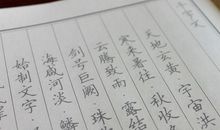 千字文
天地玄黃 宇宙洪
寒来暑往 秋收
云騰致雨 露結
剑号巨阙 珠
海咸河淡 鱗
始制文字